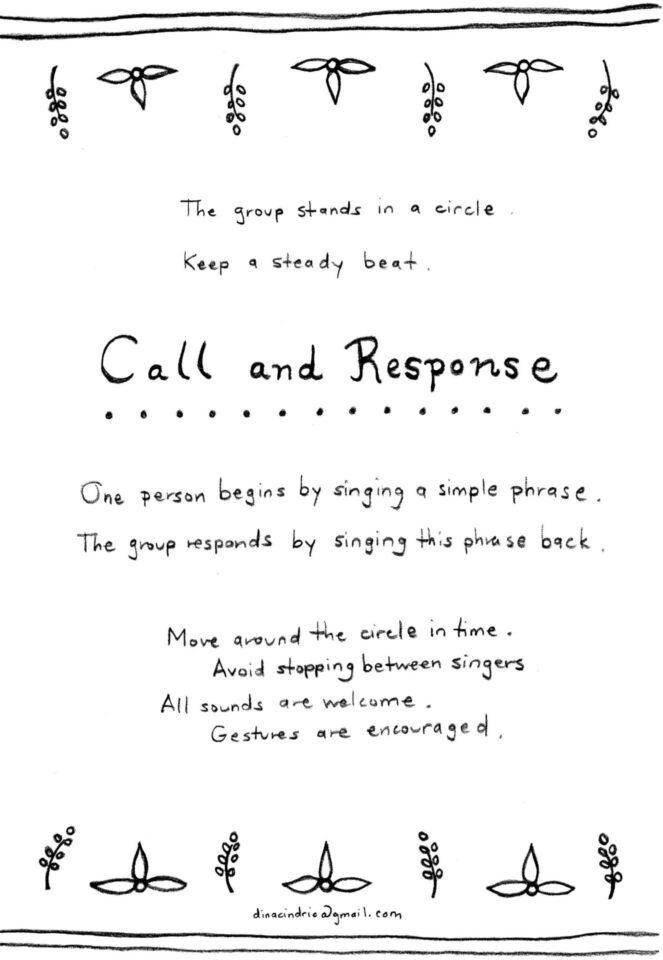 The group stands in a circle.
Keep a steady beat.
Call and Response
One person begins by singing a simple phrase.
The group responds by singing this phrase back.
Move around the circle in time.
Avoid stopping between singers
All sounds are welcome.
Gestures are encouraged.
dinacindric@gmail.com